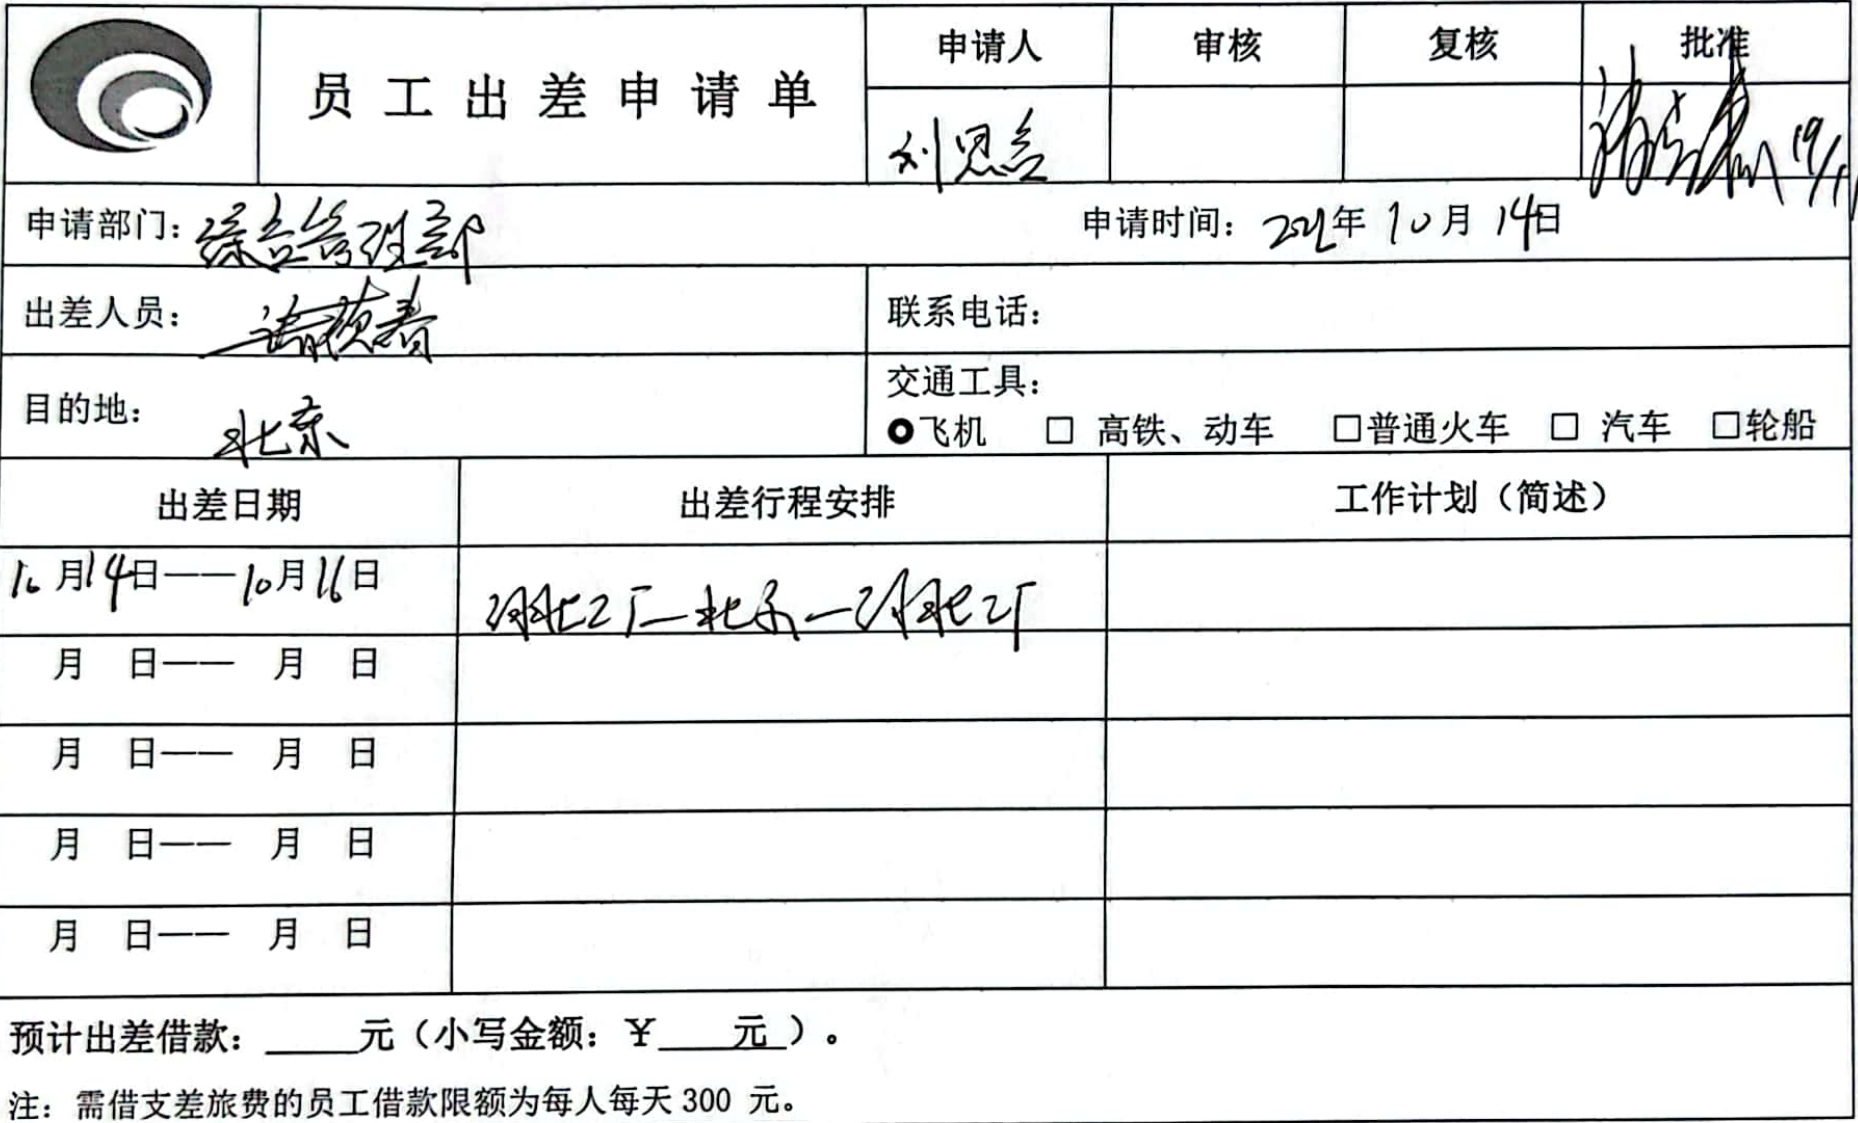 员工出差申请单
申请人 审核 复核 批准
刘思
申请部门：综合管理部 申请时间：年10月14日
出差人员： 联系电话：
目的地：北京
交通工具：
飞机 □ 高铁、动车 □普通火车 □ 汽车 □轮船
出差日期 出差行程安排 工作计划（简述）
10月14日——10月16日 湖北工厂—北京—湖北工厂
月 日—— 月 日
月 日—— 月 日
月 日—— 月 日
月 日—— 月 日
预计出差借款：____元（小写金额：￥____元）。
注：需借支差旅费的员工借款限额为每人每天300 元。